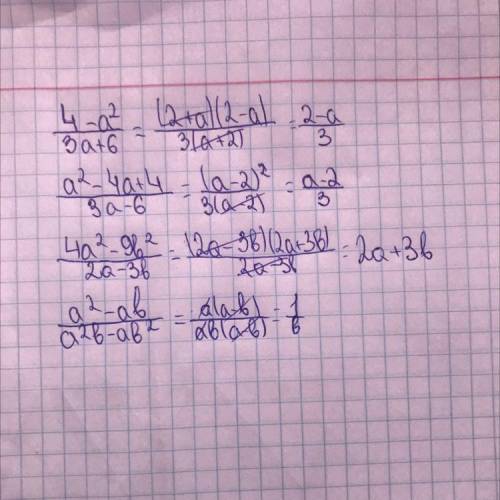 (4-a²)/(3a+6) = ((2+a)(2-a))/(3(a+2)) = (2-a)/3
(a²-4a+4)/(3a-6) = (a-2)²/(3(a-2)) = (a-2)/3
(4a²-9b²)/(2a-3b) = ((2a-3b)(2a+3b))/(2a-3b) = 2a+3b
(a²-ab)/(a²b-ab²) = (a(a-b))/(ab(a-b)) = 1/b